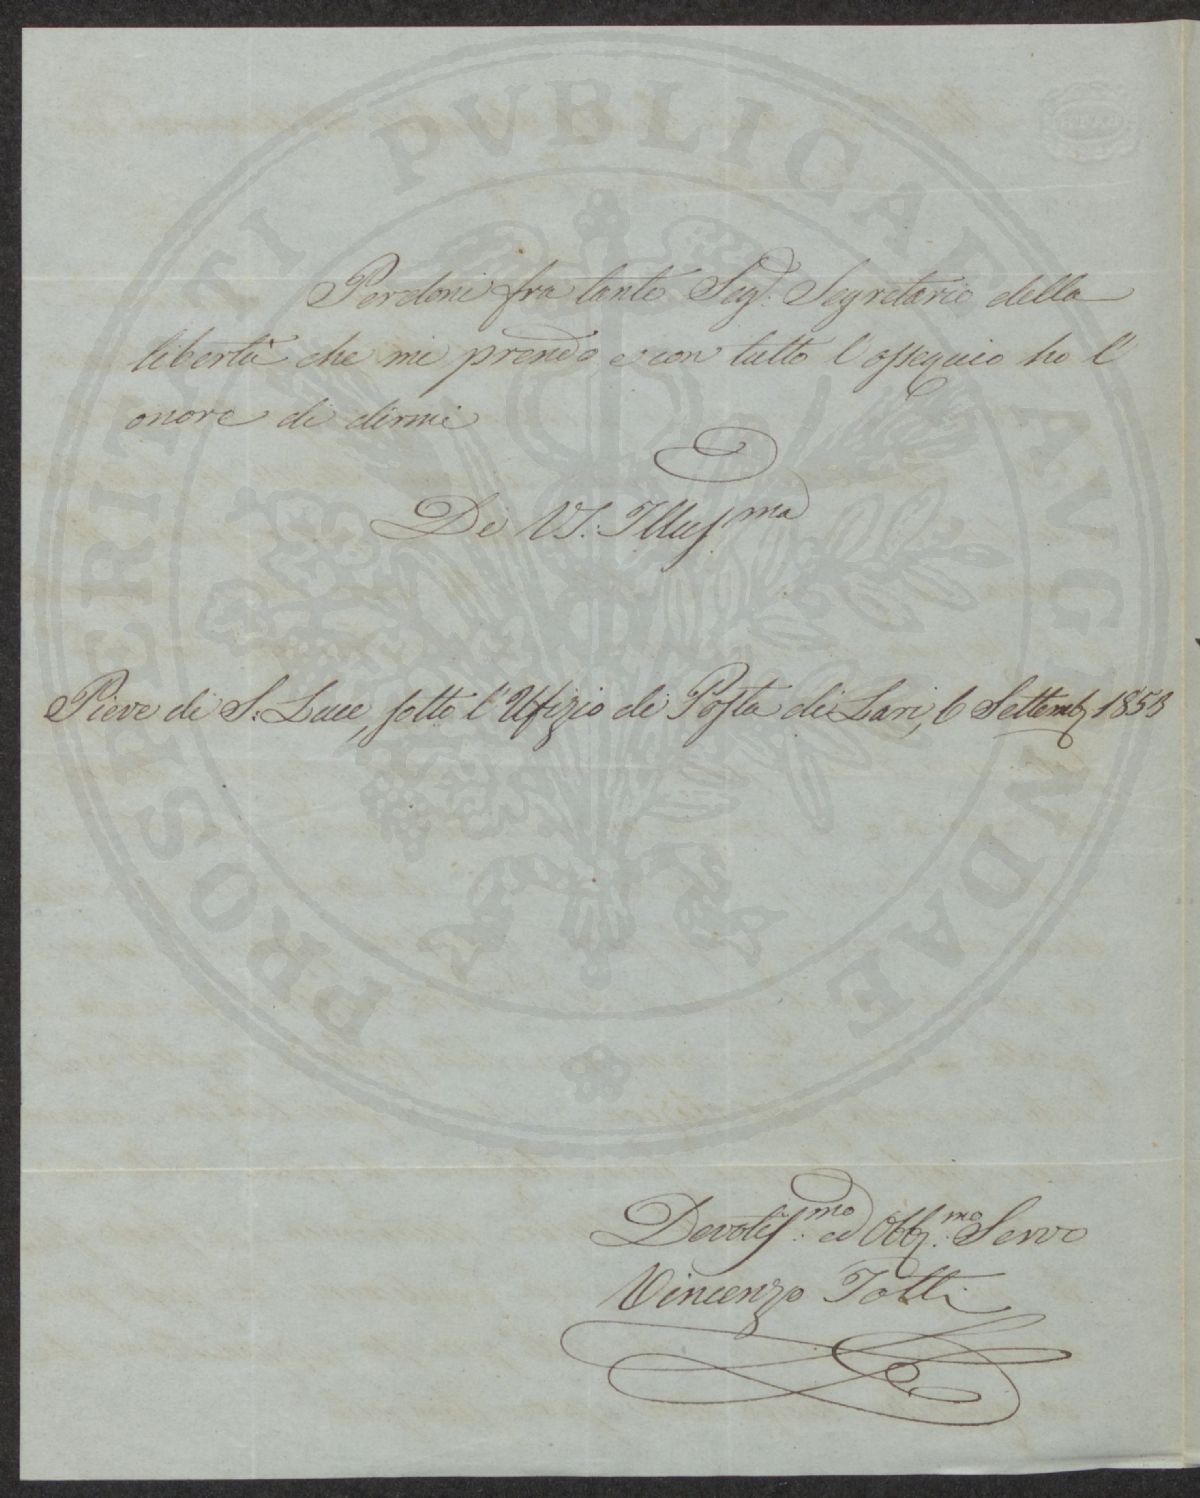 PROSPERITATI PVBLICAE AVGENDAE
Perdoni fra tanto Sig.r Segretario della
libertà che mi prendo e con tutto l'ossequio ho l'
onore di dirmi
Di VS. Illus.ma
Pieve di S. Luce, sotto l'Ufizio di Posta di Lari, 6 Settemb. 1853
Devotis.mo ed Obb.mo Servo
Vincenzo Totti